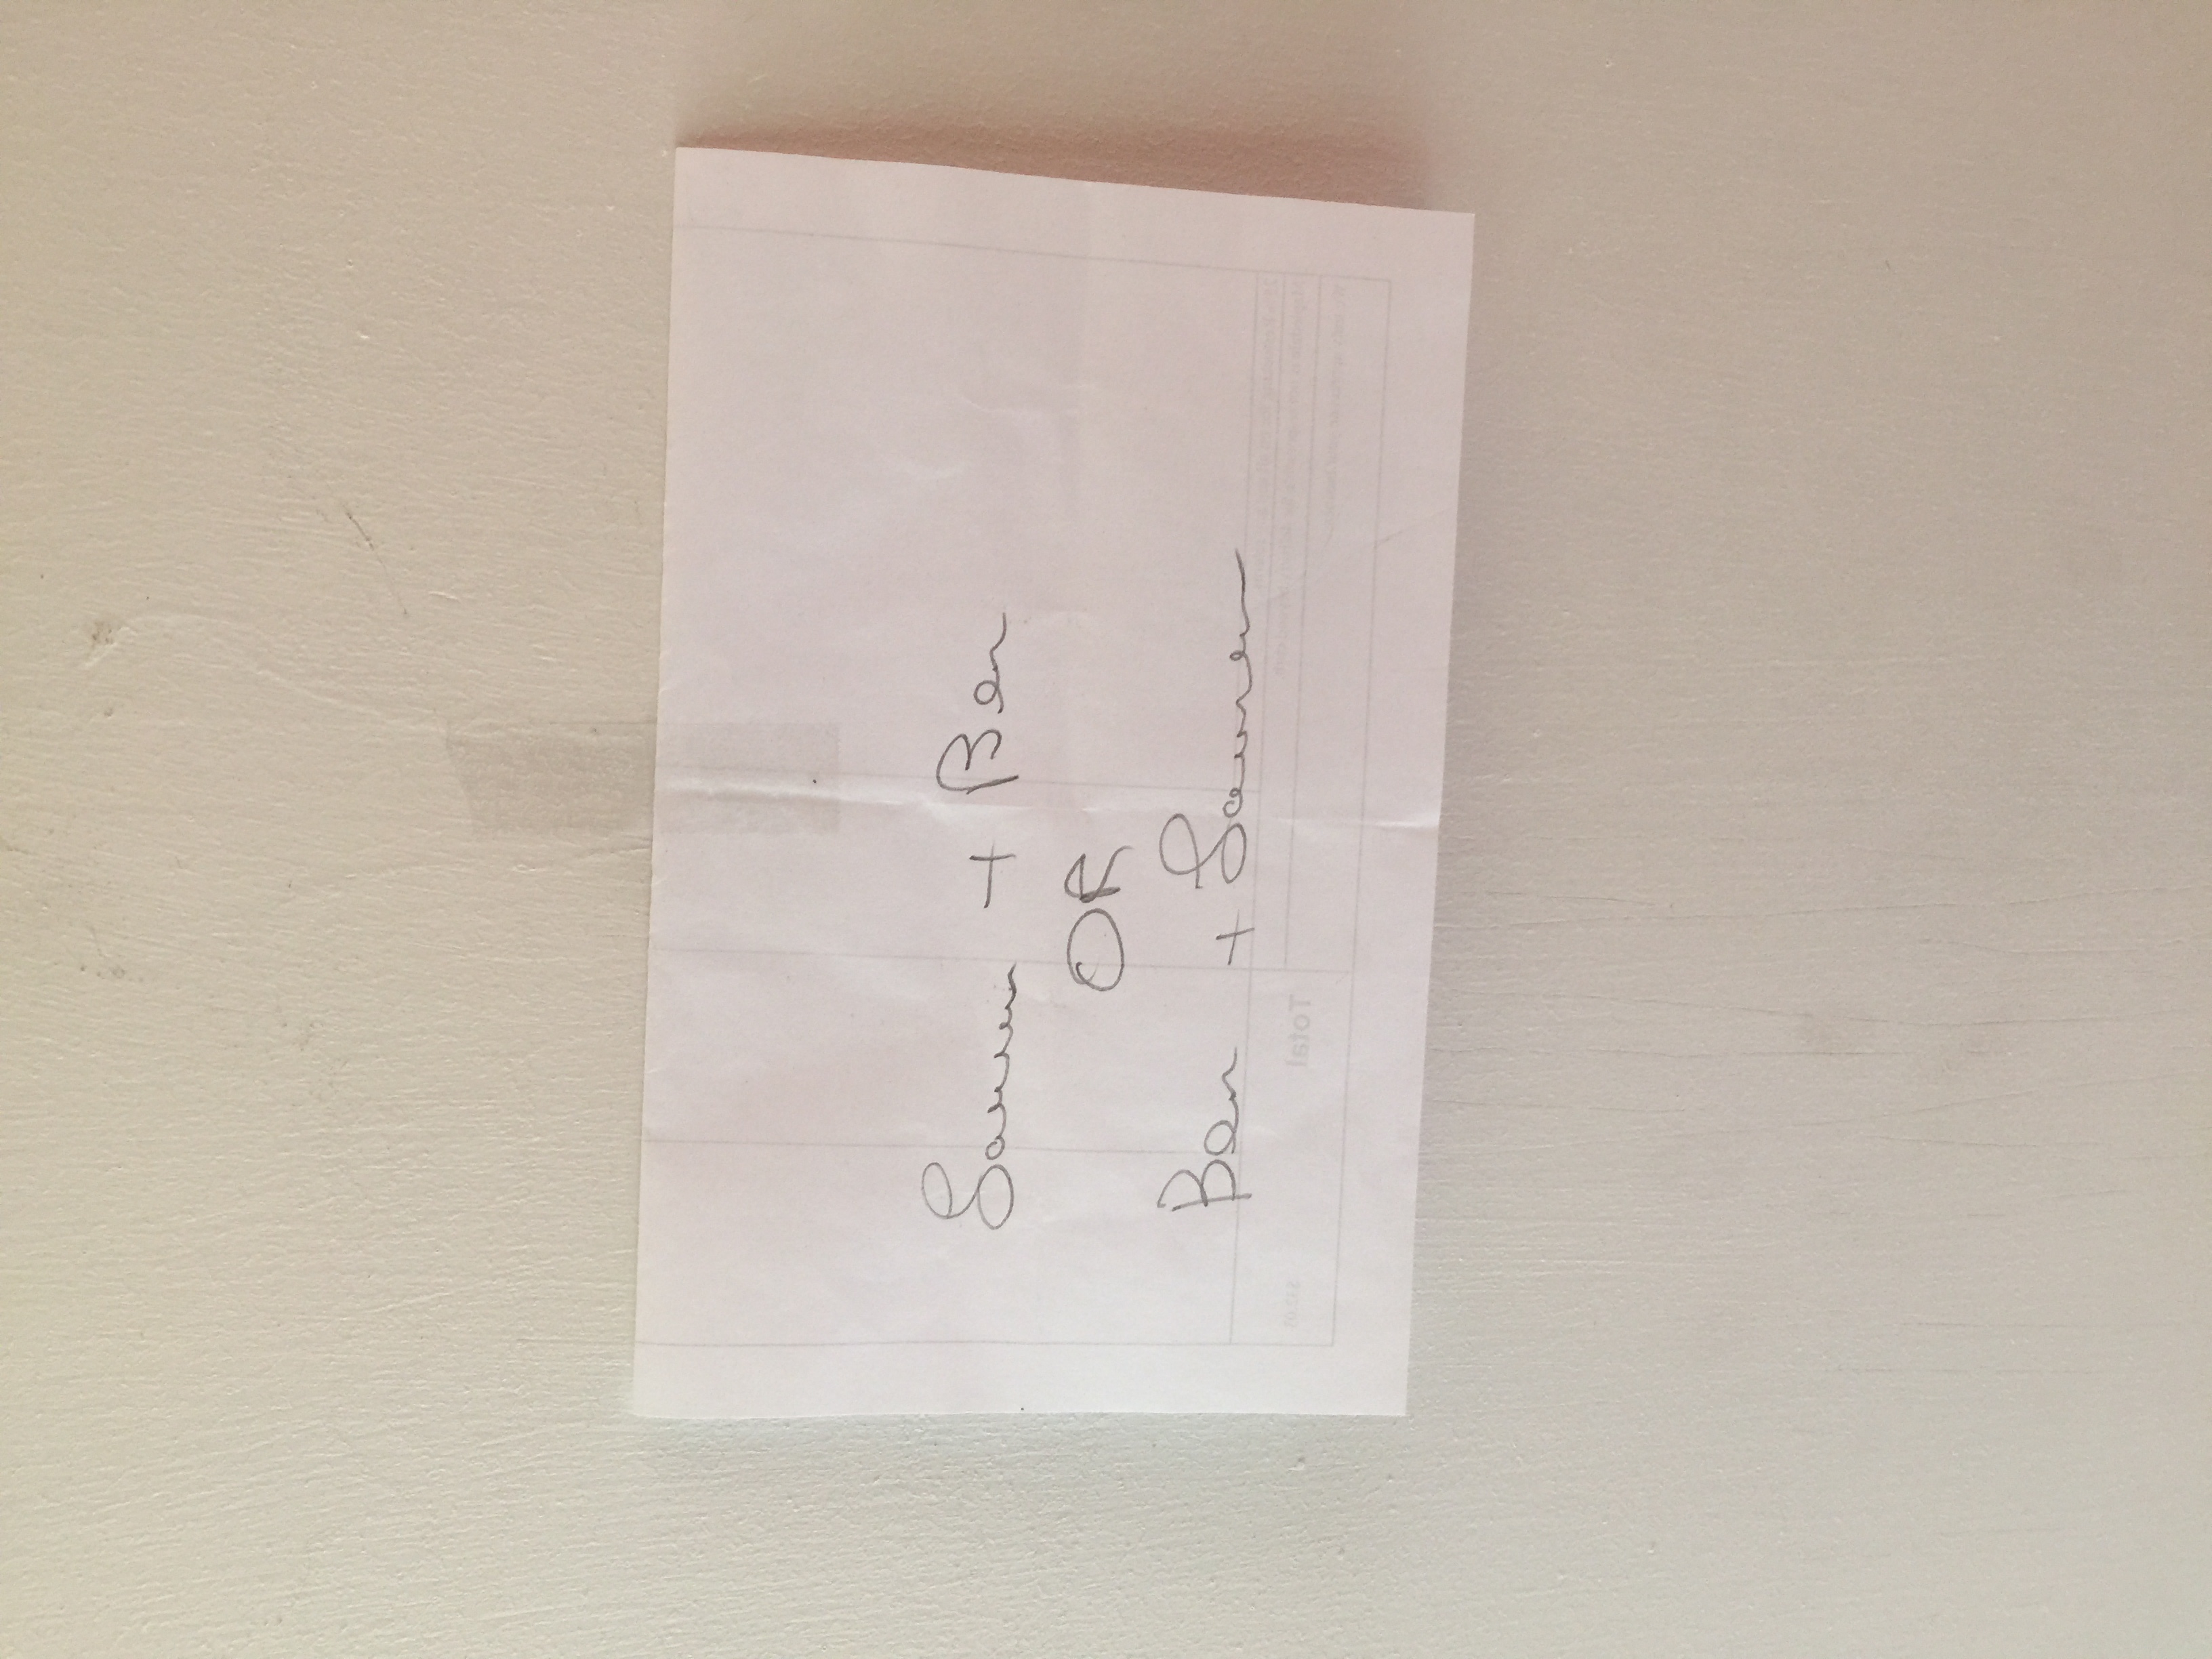 Lauren + Ben
OR
Ben + Lauren
Total